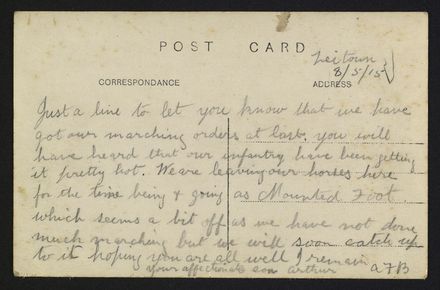 POST CARD
Zeitoun
8/5/15
CORRESPONDANCE
ADDRESS
Just a line to let you know that we have
got our marching orders at last. you will
have heard that our infantry have been getting
it pretty hot. We are leaving our horses here
for the time being & going as Mounted Foot
which seems a bit off as we have not done
much marching but we will soon catch up
to it hoping you are all well I remain
your affectionate son Arthur
A7B